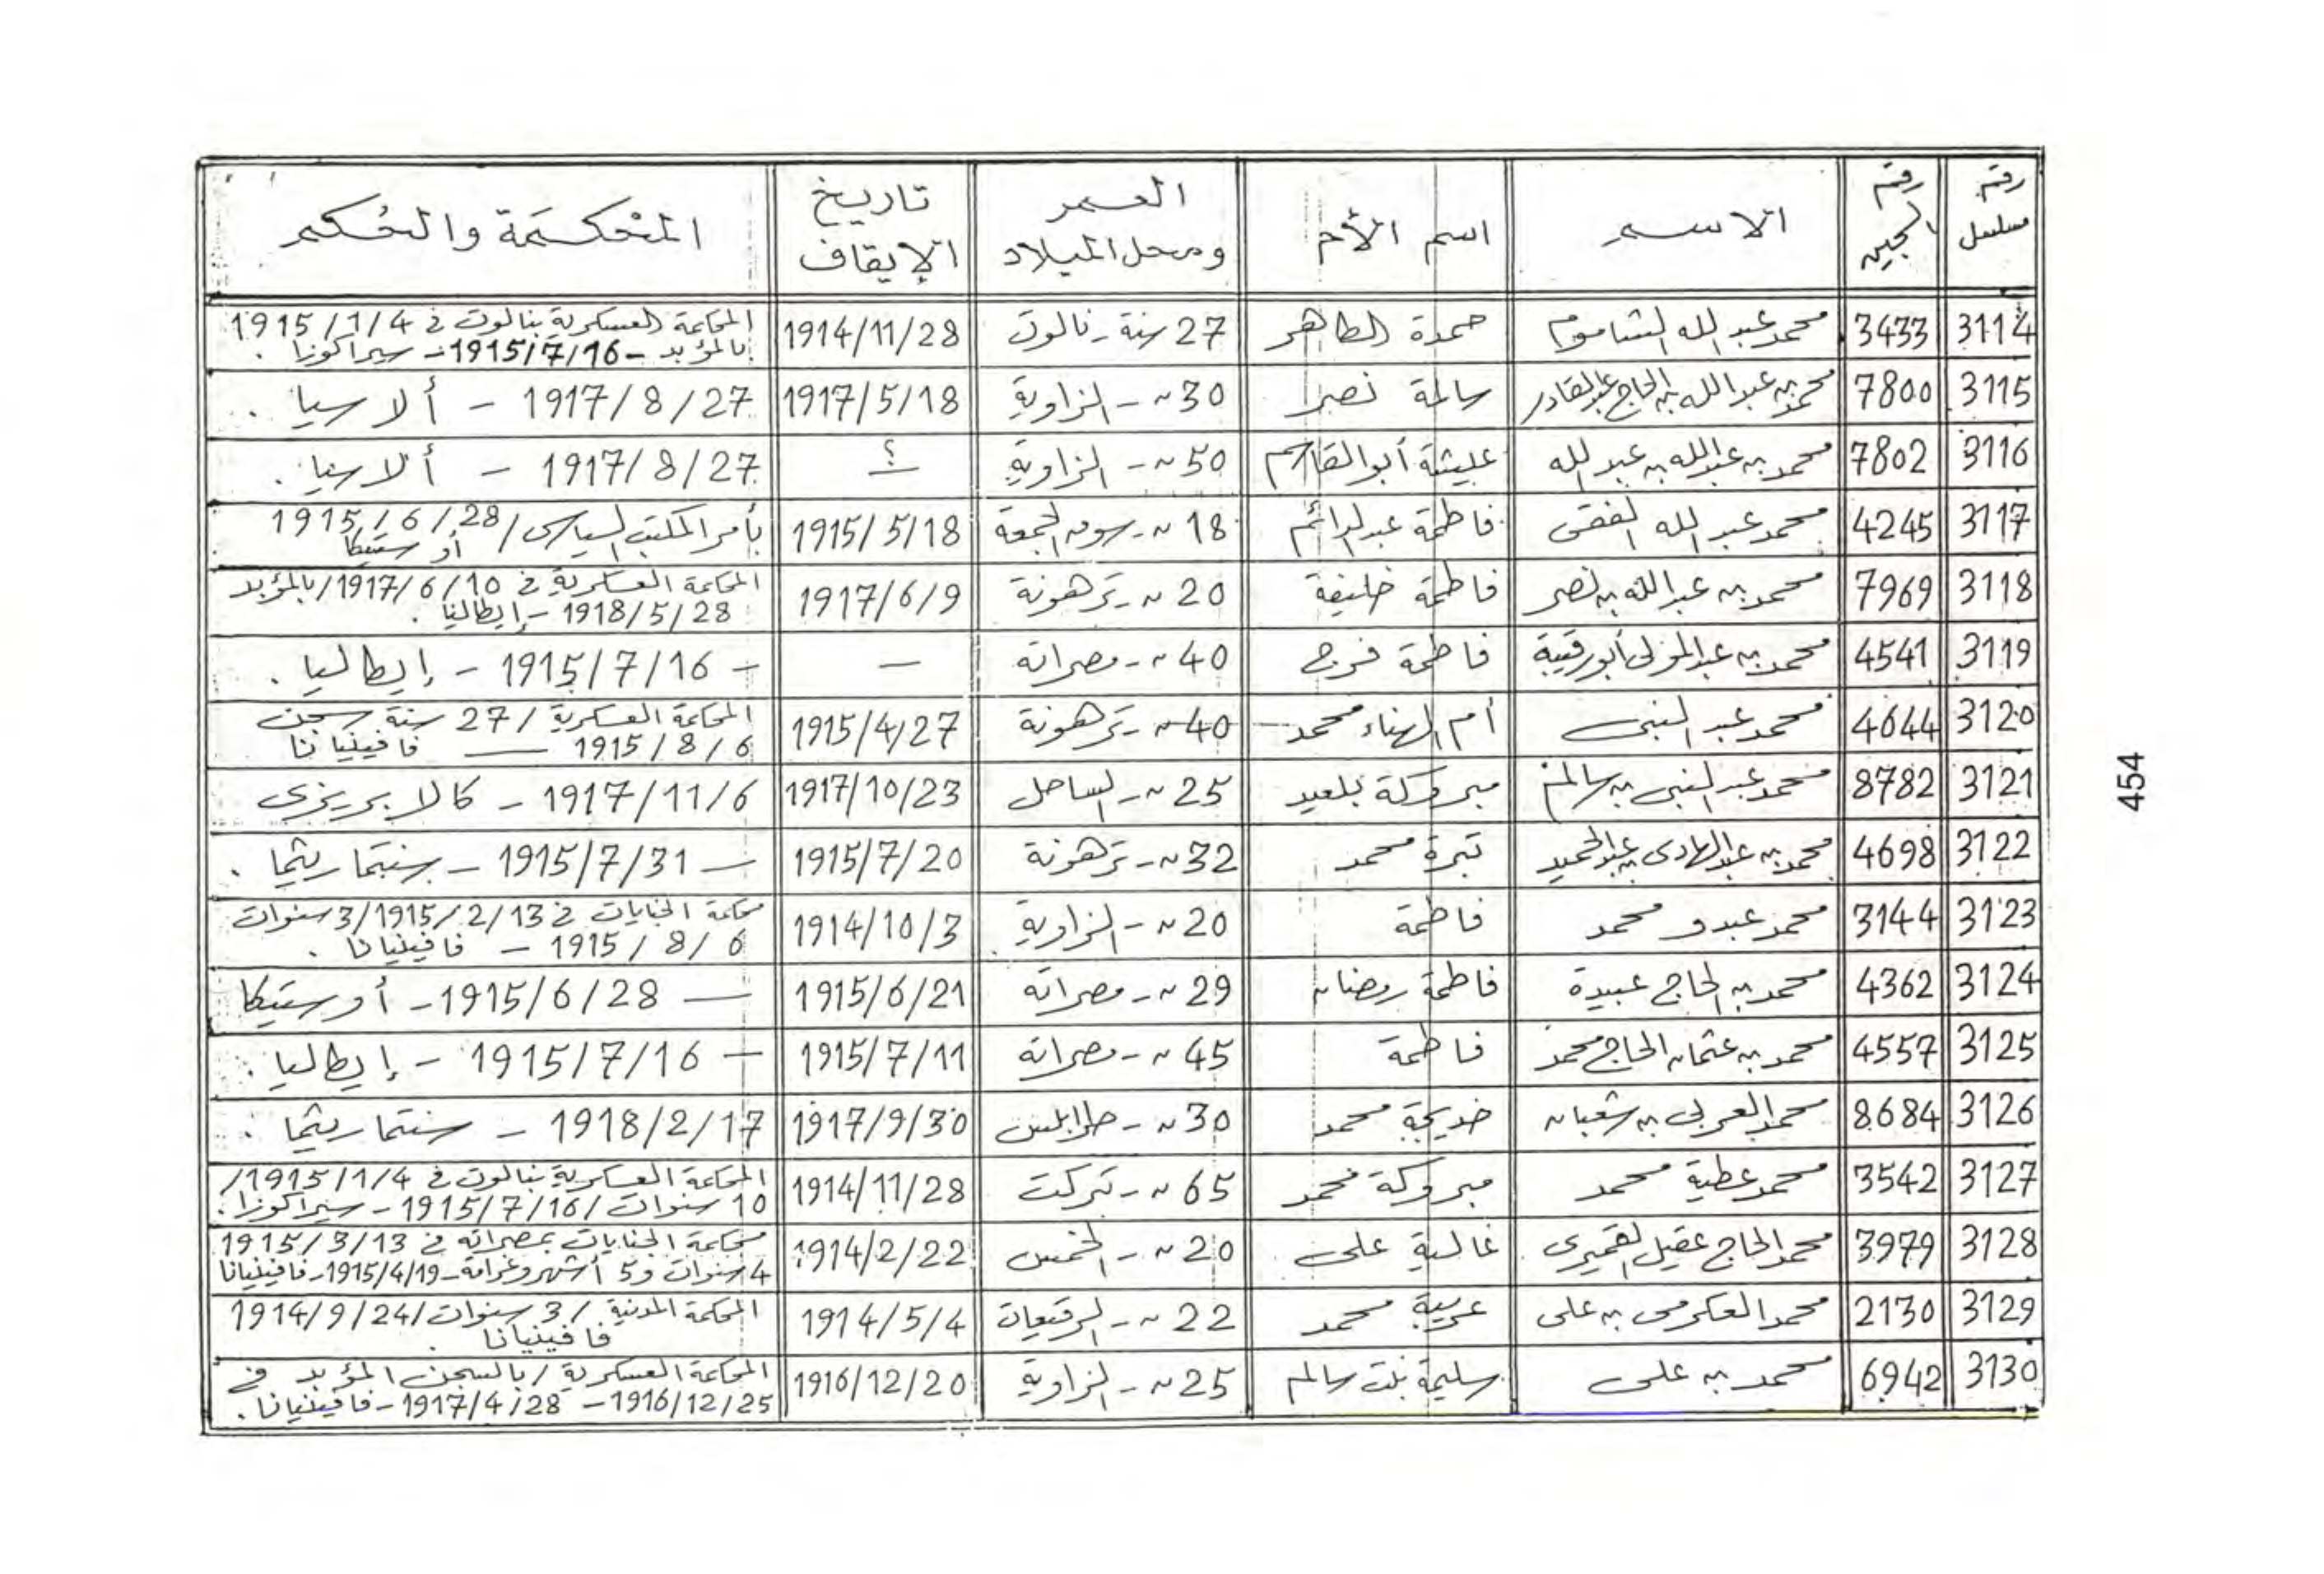 رقم مسلسل | رقم السجين | الاسم | اسم الأم | العمر ومحل الميلاد | تاريخ الإيقاف | المحكمة والحكم
3114 | 3433 | محمد عبد الله الشاموم | حمدة الطاهر | 27 سنة - نالوت | 1914/11/28 | المحاكمة العسكرية بنالوت في 1915/1/4 بالمؤبد - 1915/7/16 - سيراكوزا.
3115 | 7800 | محمد بن عبد الله بن الحاج عبد القادر | سالمة نصر | 30 ~ - الزاوية | 1917/5/18 | 1917/8/27 - ألاسيا.
3116 | 7802 | محمد بن عبد الله بن عبد الله | عليشة أبو القاسم | 50 ~ - الزاوية | ؟ | 1917/8/27 - ألاسيا.
3117 | 4245 | محمد عبد الله الفقى | فاطمة عبد الدائم | 18 ~ - سوق الجمعة | 1915/5/18 | بأمر المكتب السياسى / 1915/6/28 أوستيكا
3118 | 7969 | محمد بن عبد الله بن نصر | فاطمة خليفة | 20 ~ - ترهونة | 1917/6/9 | المحاكمة العسكرية في 1917/6/10 / بالمؤبد 1918/5/28 - إيطاليا.
3119 | 4541 | محمد بن عبد المولى أبورقيبة | فاطمة فرج | 40 ~ - مصراته | — | - 1915/7/16 - إيطاليا.
3120 | 4644 | محمد عبد النبى | أم الهناء محمد | 40 ~ - ترهونة | 1915/4/27 | المحاكمة العسكرية / 27 سنة سجن 1915/8/6 — فافينيانا
3121 | 8782 | محمد عبد النبى بن سالم | مبروكة بلعيد | 25 ~ - الساحل | 1917/10/23 | 1917/11/6 - كالابريزى
3122 | 4698 | محمد بن عبد الهادى بن عبد الحميد | تبرة محمد | 32 ~ - ترهونة | 1915/7/20 | — 1915/7/31 - سنتماريثما.
3123 | 3144 | محمد عبدو محمد | فاطمة | 20 ~ - الزاوية | 1914/10/3 | محاكمة الجنايات في 1915/2/13 / 3 سنوات 1915/8/6 - فافينيانا.
3124 | 4362 | محمد بن الحاج عبيدة | فاطمة رمضان | 29 ~ - مصراته | 1915/6/21 | — 1915/6/28 - أوستيكا
3125 | 4557 | محمد بن عثمان الحاج محمد | فاطمة | 45 ~ - مصراته | 1915/7/11 | - 1915/7/16 - إيطاليا.
3126 | 8684 | محمد العربى بن شعبان | خديجة محمد | 30 ~ - طرابلس | 1917/9/30 | 1918/2/17 - سنتماريثما.
3127 | 3542 | محمد عطية محمد | مبروكة محمد | 65 ~ - تركت | 1914/11/28 | المحاكمة العسكرية بنالوت في 1915/1/4 / 10 سنوات / 1915/7/16 - سيراكوزا.
3128 | 3979 | محمد الحاج عقيل القميرى | غالية على | 20 ~ - الخمس | 1914/2/22 | محاكمة الجنايات بمصراته في 1915/3/13 4 سنوات و5 أشهر وغرامة - 1915/4/19 - فافينيانا
3129 | 2130 | محمد العكرمى بن على | عربية محمد | 22 ~ - الرقيعات | 1914/5/4 | المحكمة المدنية / 3 سنوات / 1914/9/24 فافينيانا.
3130 | 6942 | محمد بن على | سليمة بنت سالم | 25 ~ - الزاوية | 1916/12/20 | المحاكمة العسكرية / بالسجن المؤبد في 1916/12/25 - 1917/4/28 - فافينيانا.
454